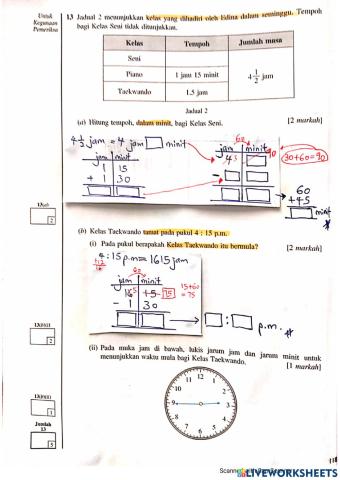 Untuk
Kegunaan
Pemeriksa
13 Jadual 2 menunjukkan kelas yang dihadiri oleh Edina dalam seminggu. Tempoh
bagi Kelas Seni tidak ditunjukkan.
Kelas Tempoh Jumlah masa
Seni
Piano 1 jam 15 minit 4 1/2 jam
Taekwando 1.5 jam
Jadual 2
(a) Hitung tempoh, dalam minit, bagi Kelas Seni. [2 markah]
4 1/2 jam = 4 jam minit
jam minit
1 15
+ 1 30
60
jam minit
4 3 90
-
30+60=90
60
+ 45
minit
13(a)
2
(b) Kelas Taekwando tamat pada pukul 4 : 15 p.m.
(i) Pada pukul berapakah Kelas Taekwando itu bermula? [2 markah]
4:15 p.m = 1615 jam
+12
16
60
jam minit
16 15 15 75
- 1 30
15+60
= 75
: p.m.
13(b)(i)
2
(ii) Pada muka jam di bawah, lukis jarum jam dan jarum minit untuk
menunjukkan waktu mula bagi Kelas Taekwando.
[1 markah]
12
11 1
10 2
9 3
8 4
7 5
6
13(b)(ii)
1
Jumlah
13
5
LIVEWORKSHEETS